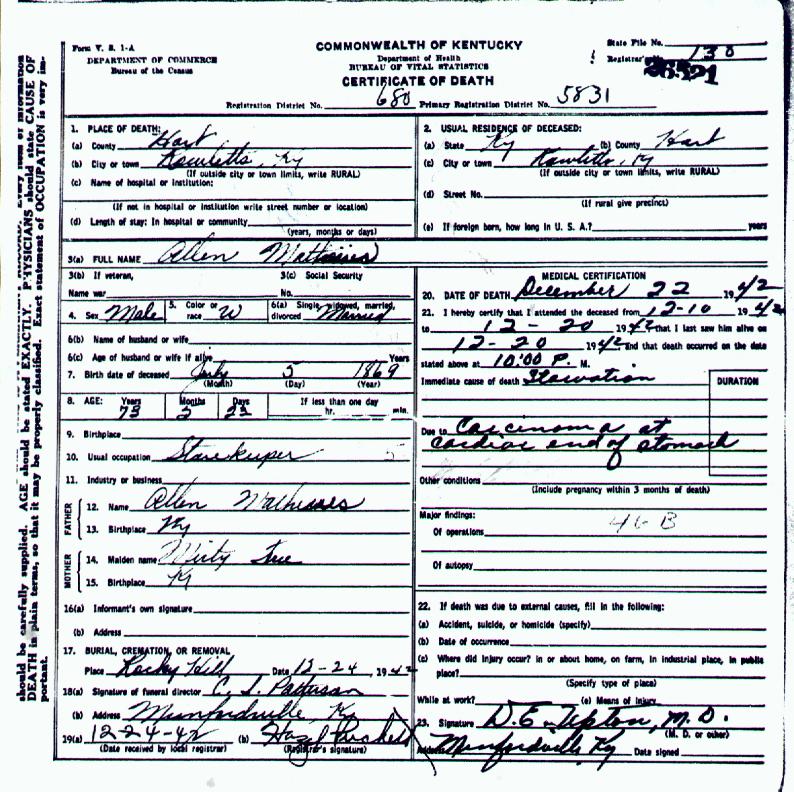 Form V. S. 1-A
DEPARTMENT OF COMMERCE
Bureau of the Census
COMMONWEALTH OF KENTUCKY
Department of Health
BUREAU OF VITAL STATISTICS
CERTIFICATE OF DEATH
State File No.
Registrar's No. 130
26521
Registration District No. 680 Primary Registration District No. 5831
1. PLACE OF DEATH:
(a) County Hart
(b) City or town Rowletts, Ky
(If outside city or town limits, write RURAL)
(c) Name of hospital or institution:
(If not in hospital or institution write street number or location)
(d) Length of stay: In hospital or community
(years, months or days)
2. USUAL RESIDENCE OF DECEASED:
(a) State Ky (b) County Hart
(c) City or town Rowletts, Ky
(If outside city or town limits, write RURAL)
(d) Street No.
(If rural give precinct)
(e) If foreign born, how long in U. S. A.? years
3(a) FULL NAME Allen
3(b) If veteran,
Name war
3(c) Social Security
No.
4. Sex Male
5. Color or race W
6(a) Single, widowed, married, divorced Married
6(b) Name of husband or wife
6(c) Age of husband or wife if alive Years
7. Birth date of deceased July 5 1869
(Month) (Day) (Year)
8. AGE: Years Months Days If less than one day
73 5 hr. min.
9. Birthplace
10. Usual occupation Storekeeper 5
11. Industry or business
FATHER
12. Name Allen
13. Birthplace Ky
MOTHER
14. Maiden name
15. Birthplace Ky
16(a) Informant's own signature
(b) Address
17. BURIAL, CREMATION, OR REMOVAL
Place Rocky Hill Date 12-24, 1942
18(a) Signature of funeral director C. S. Patterson
(b) Address Munfordville, Ky
19(a) 12-24-42 (b) Hazel
(Date received by local registrar) (Registrar's signature)
MEDICAL CERTIFICATION
20. DATE OF DEATH December 22 1942
21. I hereby certify that I attended the deceased from 12-10 1942
to 12-20 1942 that I last saw him alive on
12-20 1942 and that death occurred on the date
stated above at 10:00 P. M.
Immediate cause of death Starvation
DURATION
Due to Carcinoma at
cardiac end of stomach
Other conditions
(Include pregnancy within 3 months of death)
Major findings:
46-B
Of operations
Of autopsy
22. If death was due to external causes, fill in the following:
(a) Accident, suicide, or homicide (specify)
(b) Date of occurrence
(c) Where did injury occur? in or about home, on farm, in industrial place, in public
place?
(Specify type of place)
While at work? (e) Means of Injury
23. Signature D. E. Tipton, M. D.
(M. D. or other)
Address Munfordville Ky Date signed
should be carefully supplied. AGE should be stated EXACTLY. PHYSICIANS should state CAUSE OF
DEATH in plain terms, so that it may be properly classified. Exact statement of OCCUPATION is very im-
portant.